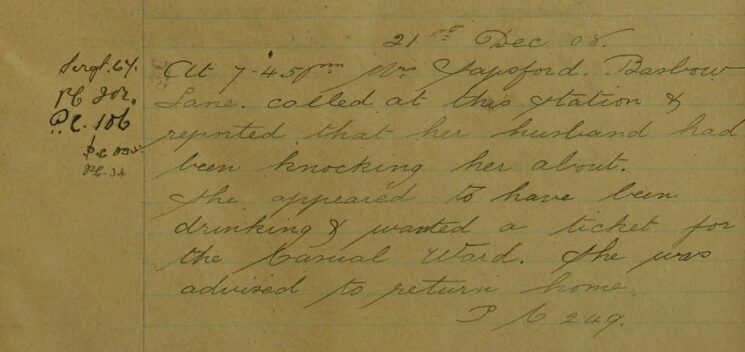 21st Dec 08.
Sergt. 64.
PC 202.
P.C. 106
P.C. 34
At 7-45pm Mrs Sapsford. Barbow
Lane. called at this station &
reported that her husband had
been knocking her about.
She appeared to have been
drinking & wanted a ticket for
the Casual Ward. She was
advised to return home.
P C 249.